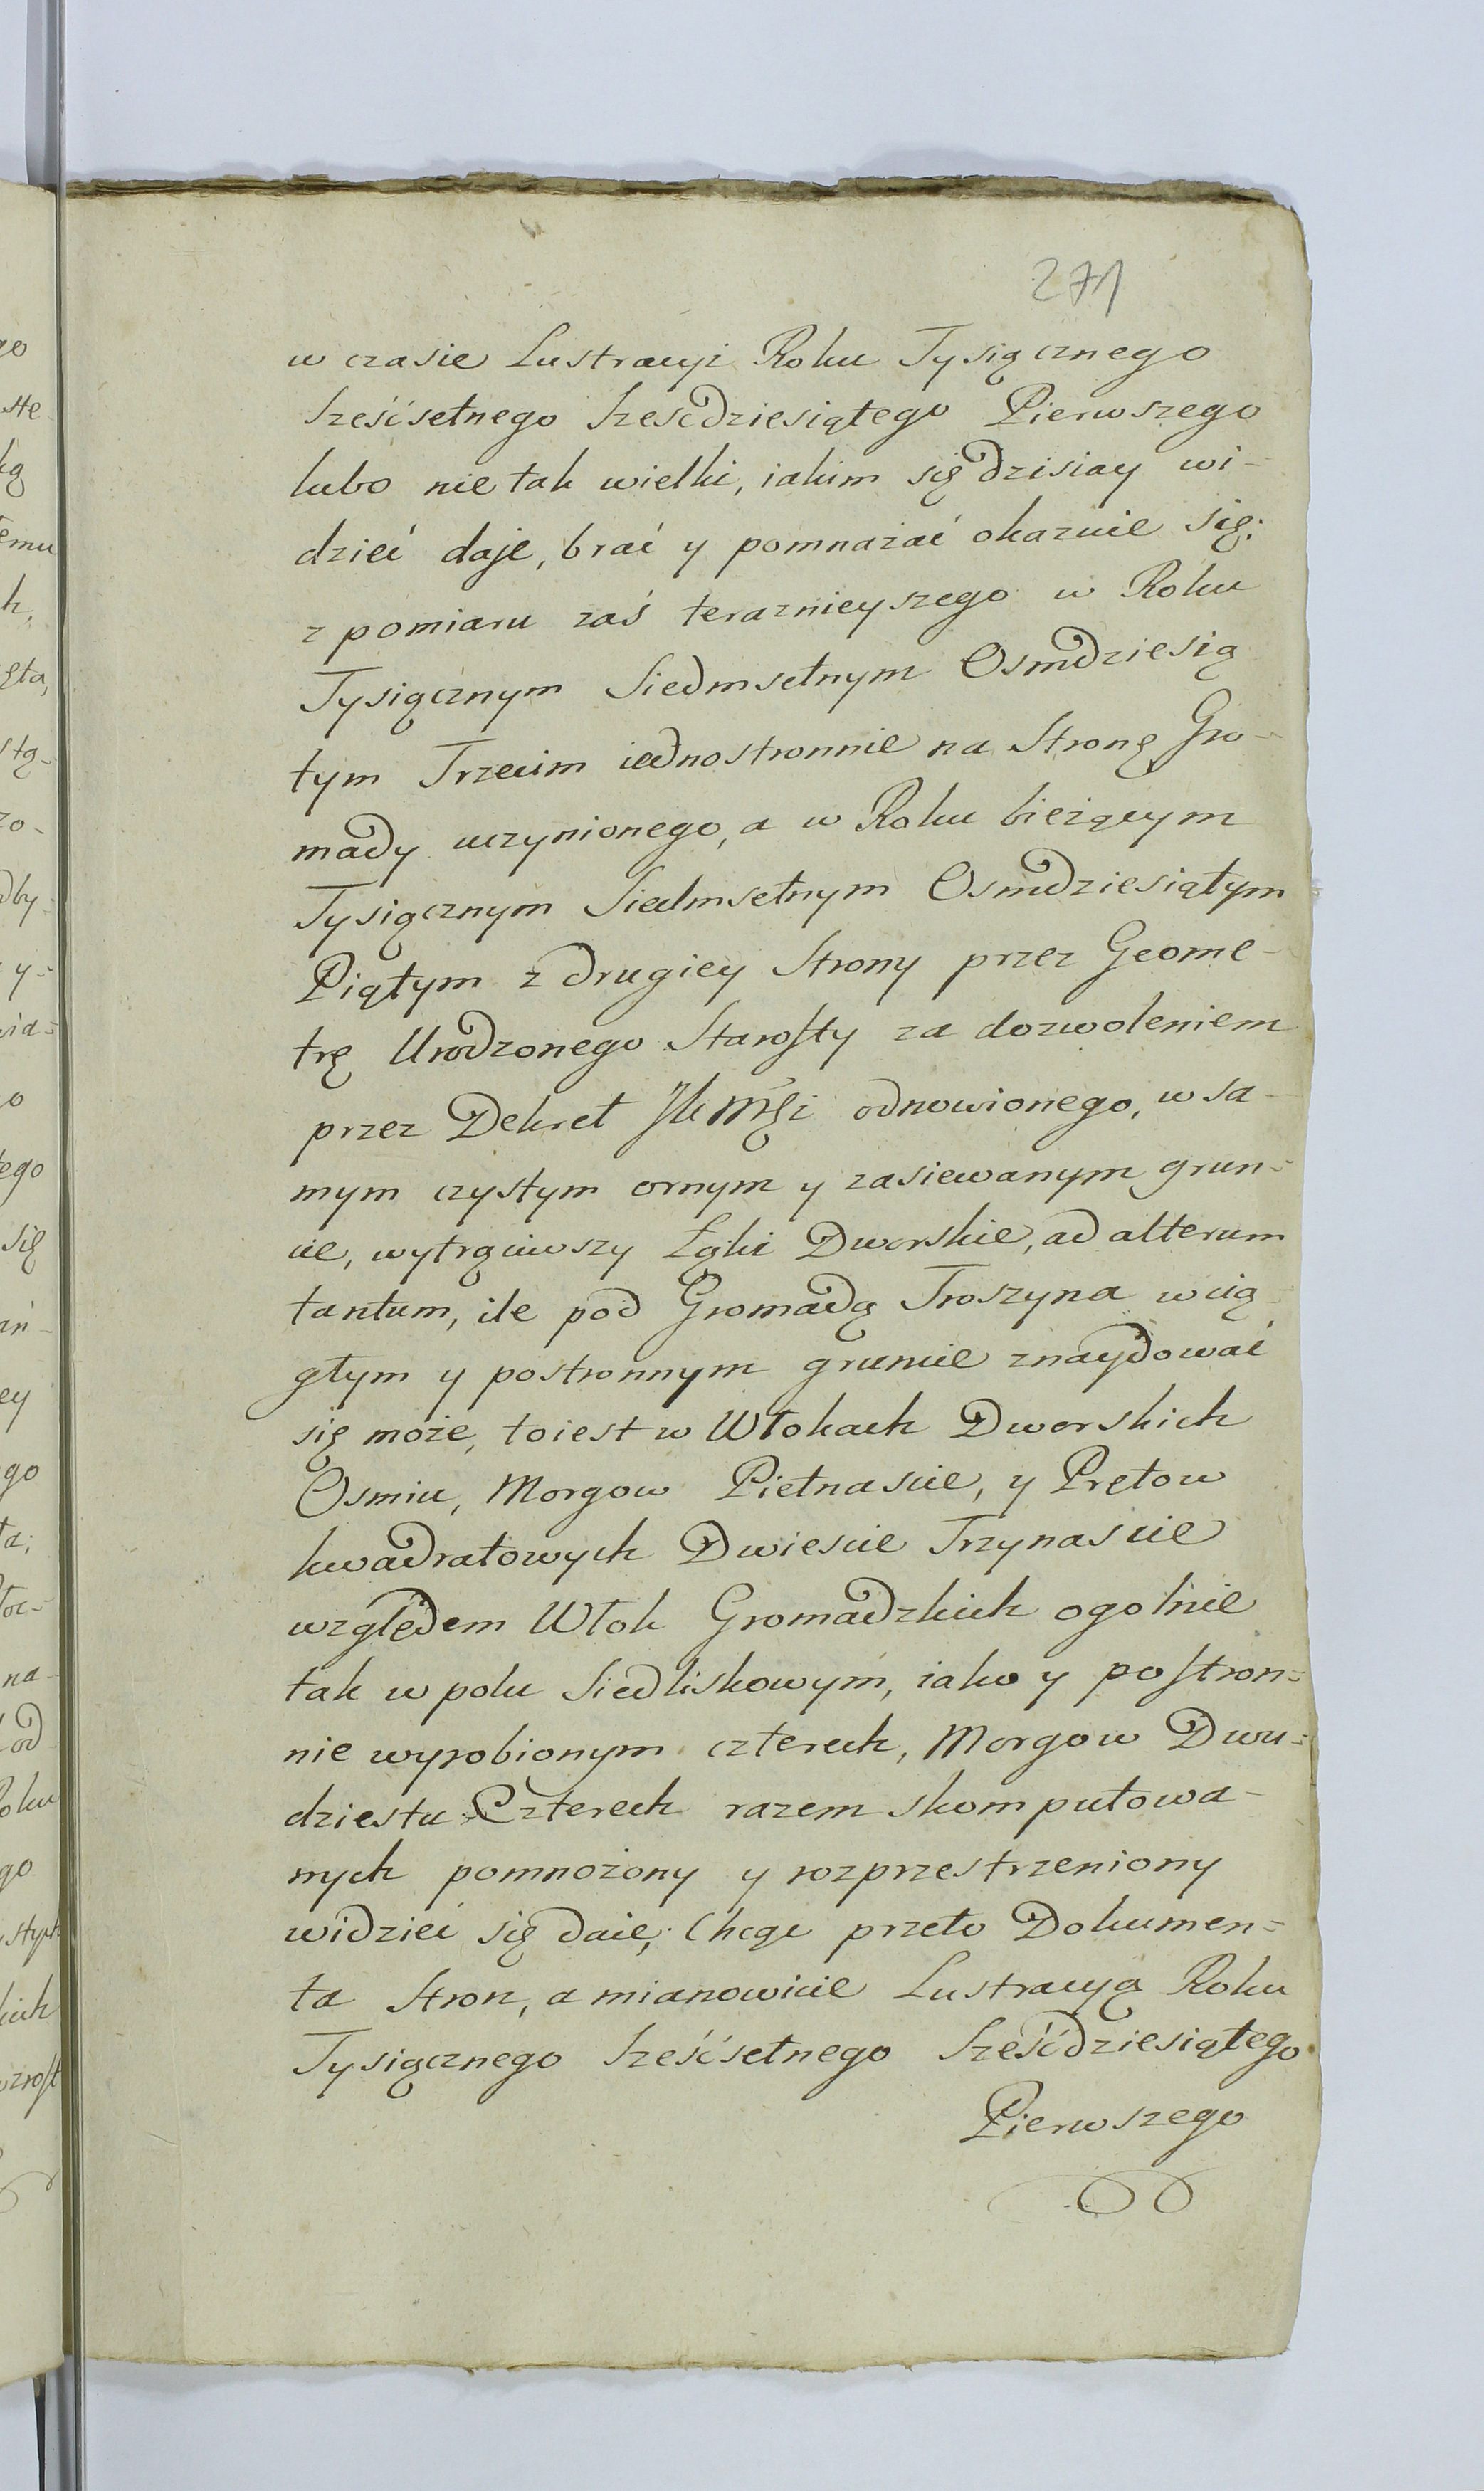 271
w czasie Lustracyi Roku Tysiącznego
Sześćsetnego Szescdziesiątego Pierwszego
lubo nie tak wielki, iakim się dzisiay wi-
dzieć daje, brać y pomnażać okazuie się;
z pomiaru zaś teraznieyszego w Roku
Tysiącznym Siedmsetnym Osmdziesią
tym Trzecim iednostronnie na Stronę Gro-
mady uczynionego, a w Roku bieżącym
Tysiącznym Siedmsetnym Osmdziesiątym
Piątym z drugiey Strony przez Geome-
trę Urodzonego Starosty za dozwoleniem
przez Dekret odnowionego, w sa-
mym czystym ornym y zasiewanym grun-
cie, wytrąciwszy Łąki Dworskie, ad alterum
tantum, ile pod Gromadą Troszyna w cią
głym y postronnym gruncie znaydować
się może, toiest w Włokach Dworskich
Osmiu, Morgow Pietnascie, y Prętow
kwadratowych Dwiescie Trzynascie
względem Włok Gromadzkich ogolnie
tak w polu Siedliskowym, iako y postron-
nie wyrobionym czterech, Morgow Dwu-
dziestu Czterech razem skomputowa-
nych pomnożony y rozprzestrzeniony
widzieć się daie; Chcąc przeto Dokumen-
ta Stron, a mianowicie Lustracyą Roku
Tysiącznego Sześćsetnego Sześćdziesiątego
Pierwszego